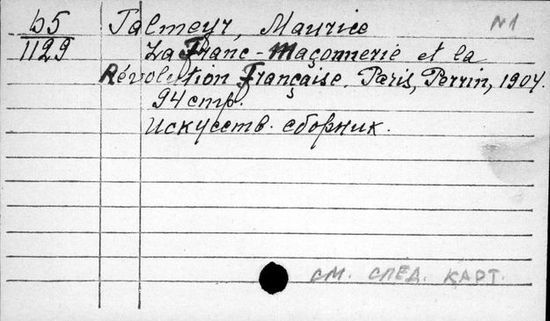 Б5 Talmeyr, Maurice №1
1129 La Franc-Maçonnerie et la
Révolution Française. Peris, Perrin, 1904.
94 стр.
Искусств. сборник.
СМ. СЛЕД. КАРТ.